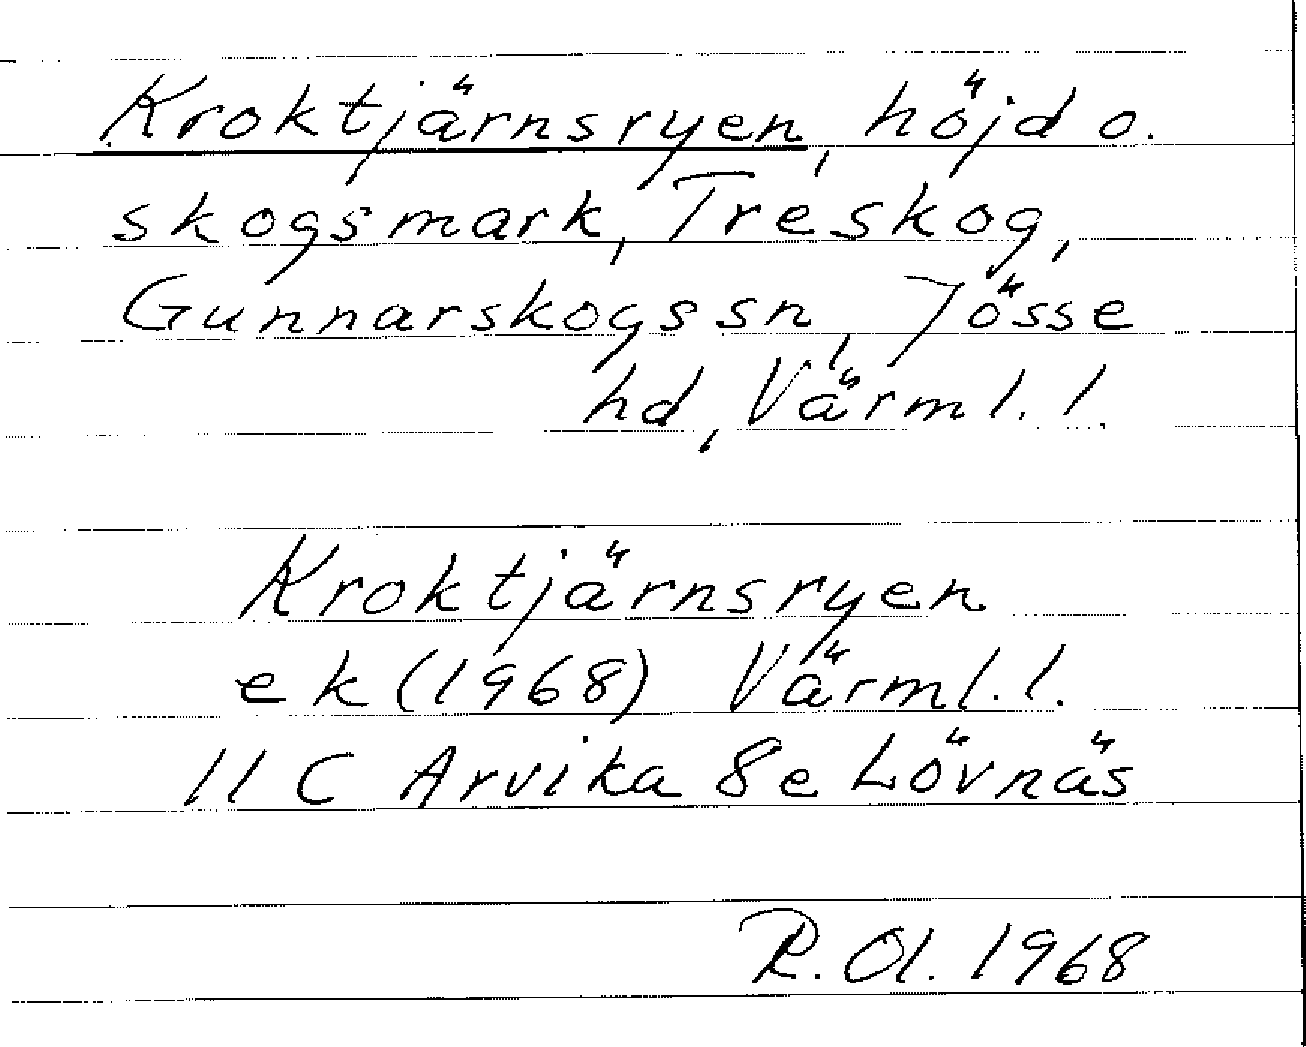 Kroktjärnsryen, höjd o.
skogsmark, Treskog,
Gunnarskogs sn, Jösse
hd, Värml. l.
Kroktjärnsryen
ek (1968) Värml. l.
11 C Arvika 8e Lövnäs
R. Ol. 1968